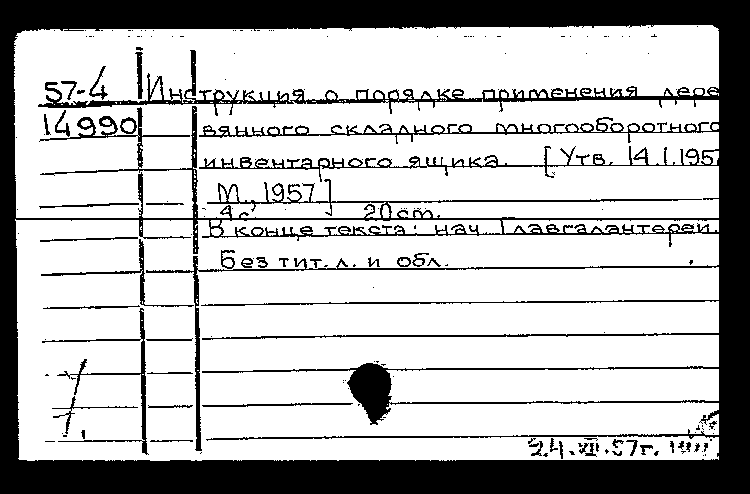 57-4 Инструкция о порядке применения дере
14990 вянного складного многооборотного
инвентарного ящика. [Утв. 14.I.1957
М., 1957]
4с. 20 см.
В конце текста: нач. Главгалантереи.
Без тит. л. и обл.
24.XII.57г.